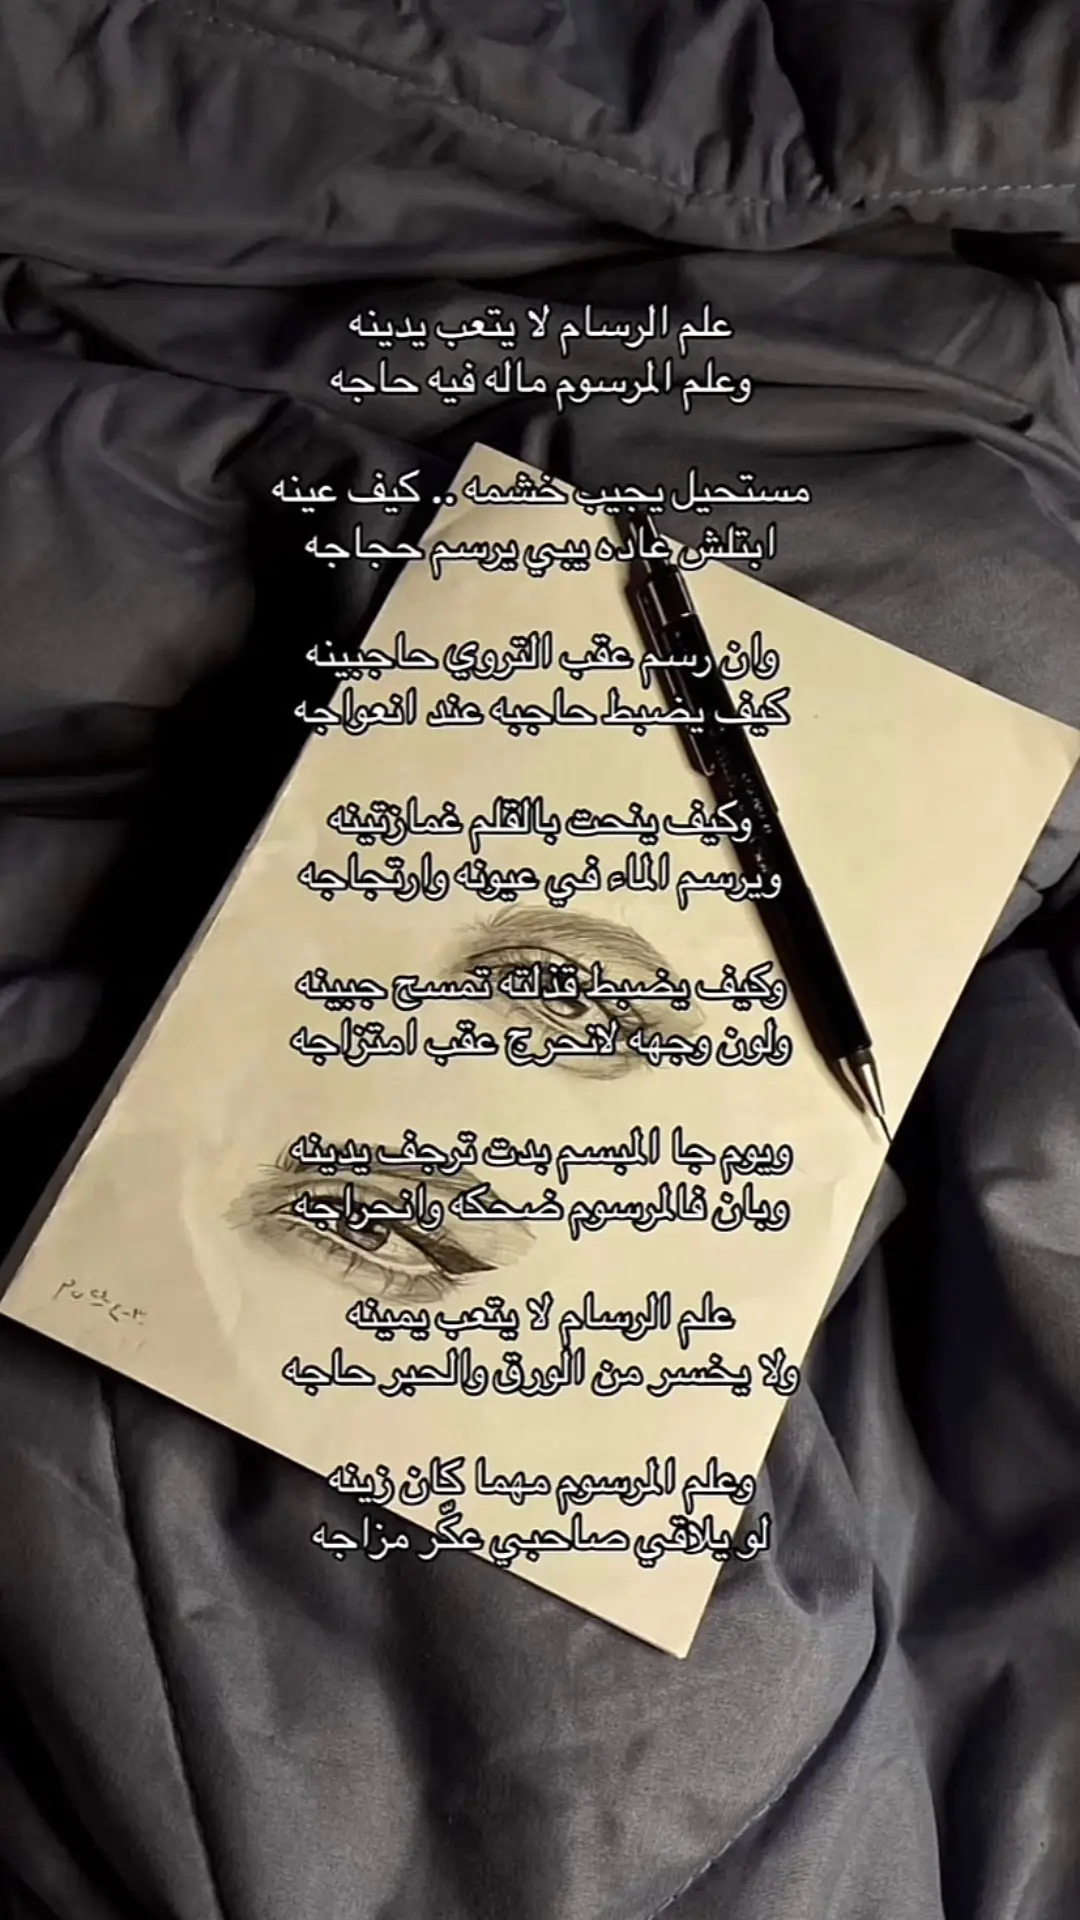 علم الرسام لا يتعب يدينه
وعلم المرسوم ماله فيه حاجه
مستحيل يجيب خشمه .. كيف عينه
ابتلش عاده يبي يرسم حجاجه
وان رسم عقب التروي حاجبينه
كيف يضبط حاجبه عند انعواجه
وكيف ينحت بالقلم غمازتينه
ويرسم الماء في عيونه وارتجاجه
وكيف يضبط قذلته تمسح جبينه
ولون وجهه لانحرج عقب امتزاجه
ويوم جا المبسم بدت ترجف يدينه
وبان فالمرسوم ضحكه وانحراجه
علم الرسام لا يتعب يمينه
ولا يخسر من الورق والحبر حاجه
وعلم المرسوم مهما كان زينه
لو يلاقي صاحبي عكّر مزاجه